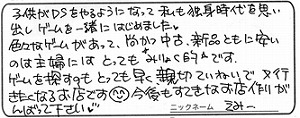 子供がDSをやるようになって私も独身時代を思い
出しゲームを一緒にはじめました。
色々なゲームがあって、尚かつ中古、新品ともに安い
のは主婦には とっても みりょく的です。
ゲームを探すのもとっても早く親切ていねいで 又行
きたくなるお店です 今後もすてきなお店作りが
んばって下さい♥
ニックネーム